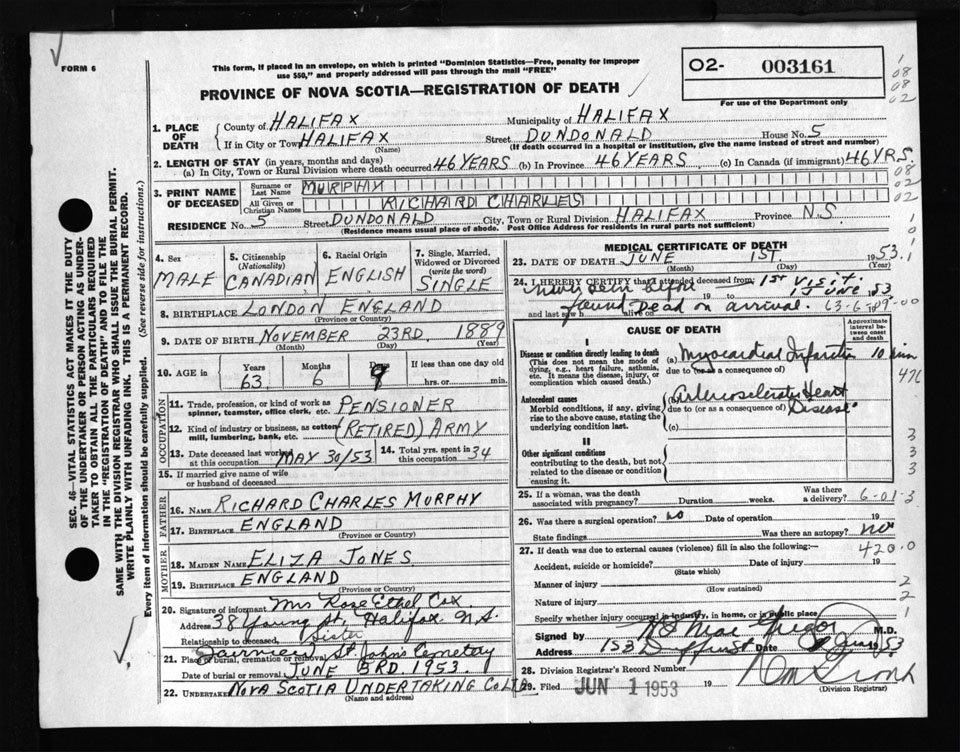 FORM 6
This form, if placed in an envelope, on which is printed "Dominion Statistics—Free, penalty for improper
use $50," and properly addressed will pass through the mail "FREE"
PROVINCE OF NOVA SCOTIA—REGISTRATION OF DEATH
02- 003161
For use of the Department only
1. PLACE OF DEATH
County of HALIFAX Municipality of HALIFAX
If in City or Town HALIFAX (Name) Street DUNDONALD House No. 5
(If death occurred in a hospital or institution, give the name instead of street and number)
2. LENGTH OF STAY (in years, months and days)
(a) In City, Town or Rural Division where death occurred 46 YEARS (b) In Province 46 YEARS (c) In Canada (if immigrant) 46 YRS.
3. PRINT NAME OF DECEASED
Surname or Last Name MURPHY
All Given or Christian Names RICHARD CHARLES
RESIDENCE No. 5 Street DUNDONALD City, Town or Rural Division HALIFAX Province N.S.
(Residence means usual place of abode. Post Office Address for residents in rural parts not sufficient)
4. Sex MALE
5. Citizenship (Nationality) CANADIAN
6. Racial Origin ENGLISH
7. Single, Married, Widowed or Divorced (write the word) SINGLE
8. BIRTHPLACE LONDON ENGLAND
(Province or Country)
9. DATE OF BIRTH NOVEMBER 23RD. 1889
(Month) (Day) (Year)
10. AGE in Years 63 Months 6 9 If less than one day old hrs. or min.
OCCUPATION
11. Trade, profession, or kind of work as spinner, teamster, office clerk, etc. PENSIONER
12. Kind of industry or business, as cotton mill, lumbering, bank, etc. (RETIRED) ARMY
13. Date deceased last worked at this occupation MAY 30/53
14. Total yrs. spent in this occupation 34
15. If married give name of wife or husband of deceased
FATHER
16. NAME RICHARD CHARLES MURPHY
17. BIRTHPLACE ENGLAND
(Province or Country)
MOTHER
18. MAIDEN NAME ELIZA JONES
19. BIRTHPLACE ENGLAND
(Province or Country)
20. Signature of informant Mrs Rose Ethel Cox
Address 38 Young St. Halifax N.S.
Relationship to deceased, Sister
21. Place of burial, cremation or removal Fairview St. John's Cemetary
Date of burial or removal JUNE 3RD. 1953
22. UNDERTAKER NOVA SCOTIA UNDERTAKING Co LTD
(Name and Address)
MEDICAL CERTIFICATE OF DEATH
23. DATE OF DEATH JUNE 1ST. 1953
(Month) (Day) (Year)
24. I HEREBY CERTIFY that I attended deceased from:
never seen before 1st visit
19 to 1 June 53
and last saw h alive on 19
found dead on arrival. 63-6-09-00
CAUSE OF DEATH
Approximate interval between onset and death
I
Disease or condition directly leading to death
(This does not mean the mode of dying, e.g., heart failure, asthenia, etc. It means the disease, injury, or complication which caused death.)
(a) Myocardial Infarction 10 min
due to (or as a consequence of)
Antecedent causes
Morbid conditions, if any, giving rise to the above cause, stating the underlying condition last.
Arteriosclerotic Heart Disease
due to (or as a consequence of)
(c)
II
Other significant conditions
contributing to the death, but not related to the disease or condition causing it.
25. If a woman, was the death associated with pregnancy? Duration weeks. Was there a delivery?
6-01-3
26. Was there a surgical operation? no Date of operation 19
State findings Was there an autopsy? no
27. If death was due to external causes (violence) fill in also the following:—
420.0
Accident, suicide or homicide? Date of injury 19
(State which)
Manner of injury
(How sustained)
Nature of injury
Specify whether injury occurred in industry, in home, or in public place
Signed by MacGregor M.D.
Address 153 Date June 1953
28. Division Registrar's Record Number
29. Filed JUN 1 1953 19
(Division Registrar)
SEC. 46—VITAL STATISTICS ACT MAKES IT THE DUTY
OF THE UNDERTAKER OR PERSON ACTING AS UNDERTAKER
TO OBTAIN ALL THE PARTICULARS REQUIRED
IN THE "REGISTRATION OF DEATH" AND TO FILE THE
SAME WITH THE DIVISION REGISTRAR WHO SHALL ISSUE THE BURIAL PERMIT.
WRITE PLAINLY WITH UNFADING INK. THIS IS A PERMANENT RECORD.
Every item of information should be carefully supplied. (See reverse side for instructions.)